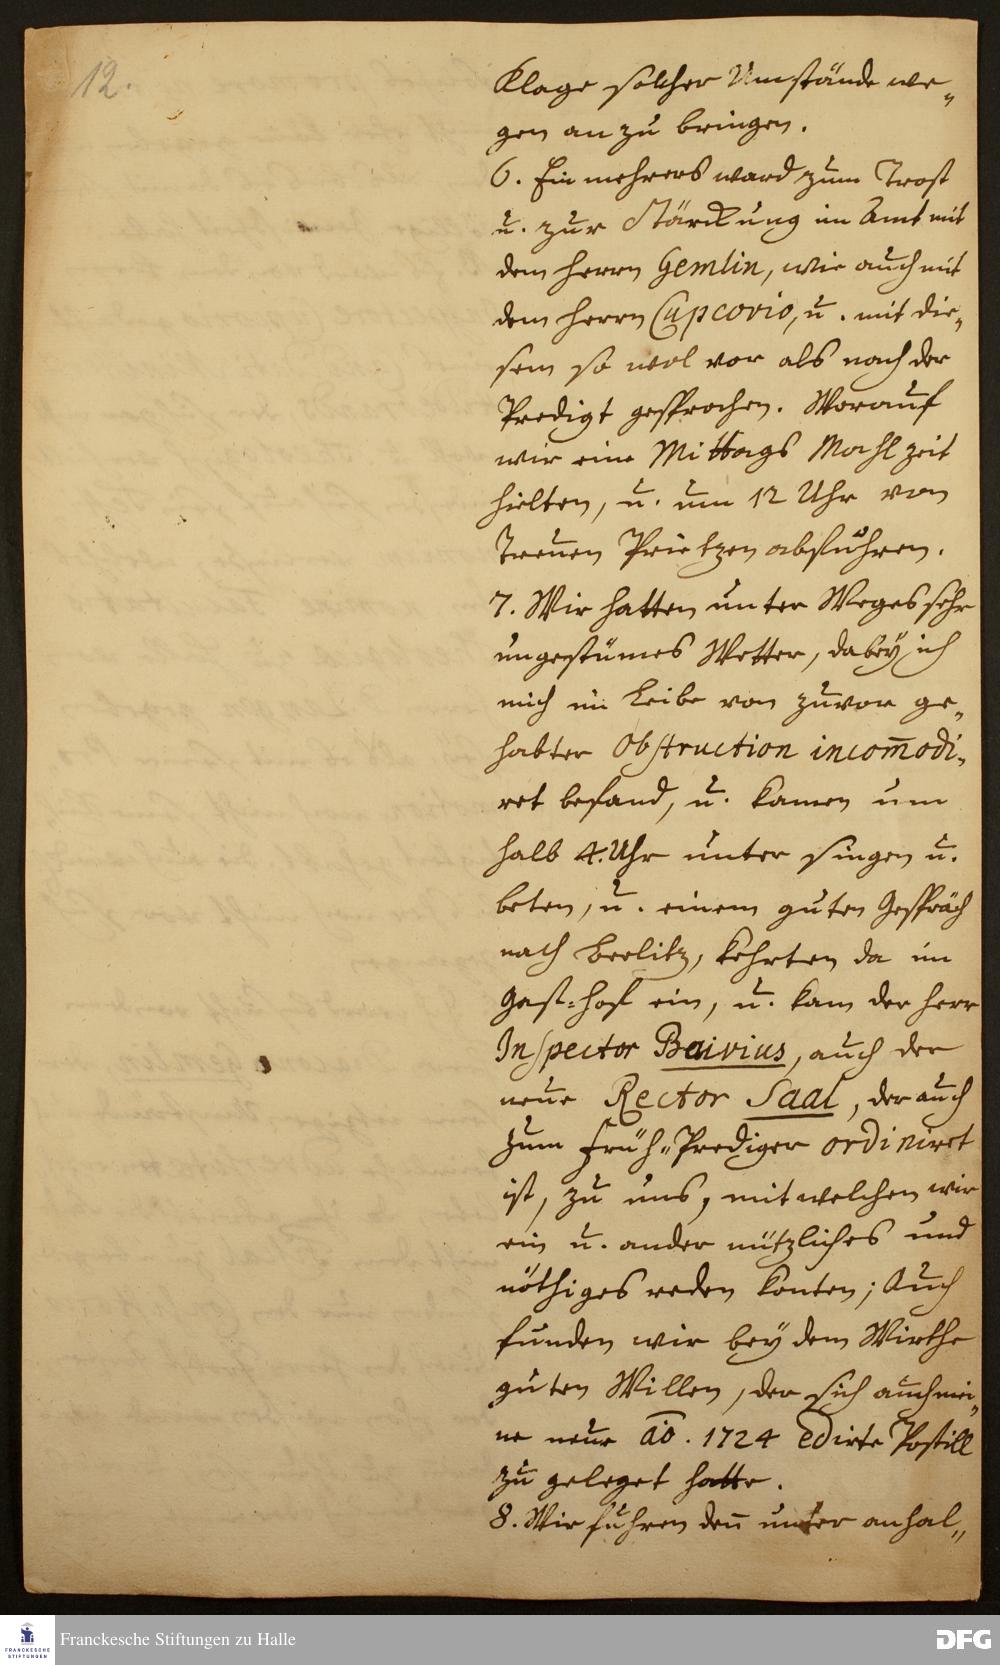 12.
Klage solcher Umstände we„
gen an zu bringen.
6. Ein mehrers ward zum Trost
u. zur Stärckung im Amt mit
dem Herrn Gemlin, wie auch mit
dem Herrn Capcovio, u. mit die„
sem so wol vor als nach der
Predigt gesprochen. Worauf
wir eine Mittags Mahlzeit
hielten, u. um 12 Uhr von
Treuen Prietzen abfuhren.
7. Wir hatten unter Weges sehr
ungestümes Wetter, dabey ich
mich im Leibe von zuvor ge„
habter Obstruction incom̅odi„
ret befand, u. kamen um
halb 4. Uhr unter singen u.
beten, u. einem guten Gespräch
nach Beelitz, kehrten da im
Gast=hof ein, u. kam der Herr
Inspector Baivius, auch der
neue Rector Saal, der auch
zum Früh=Prediger ordiniret
ist, zu uns, mit welchen wir
ein u. ander nützliches und
nöthiges reden konten; Auch
funden wir bey dem Wirthe
guten Willen, der sich auch mei„
ne neue ao̅. 1724 edirte Postill
zu geleget hatte.
8. Wir fuhren den̅ unter anhal„
FRANCKESCHE
STIFTUNGEN
Franckesche Stiftungen zu Halle
DFG